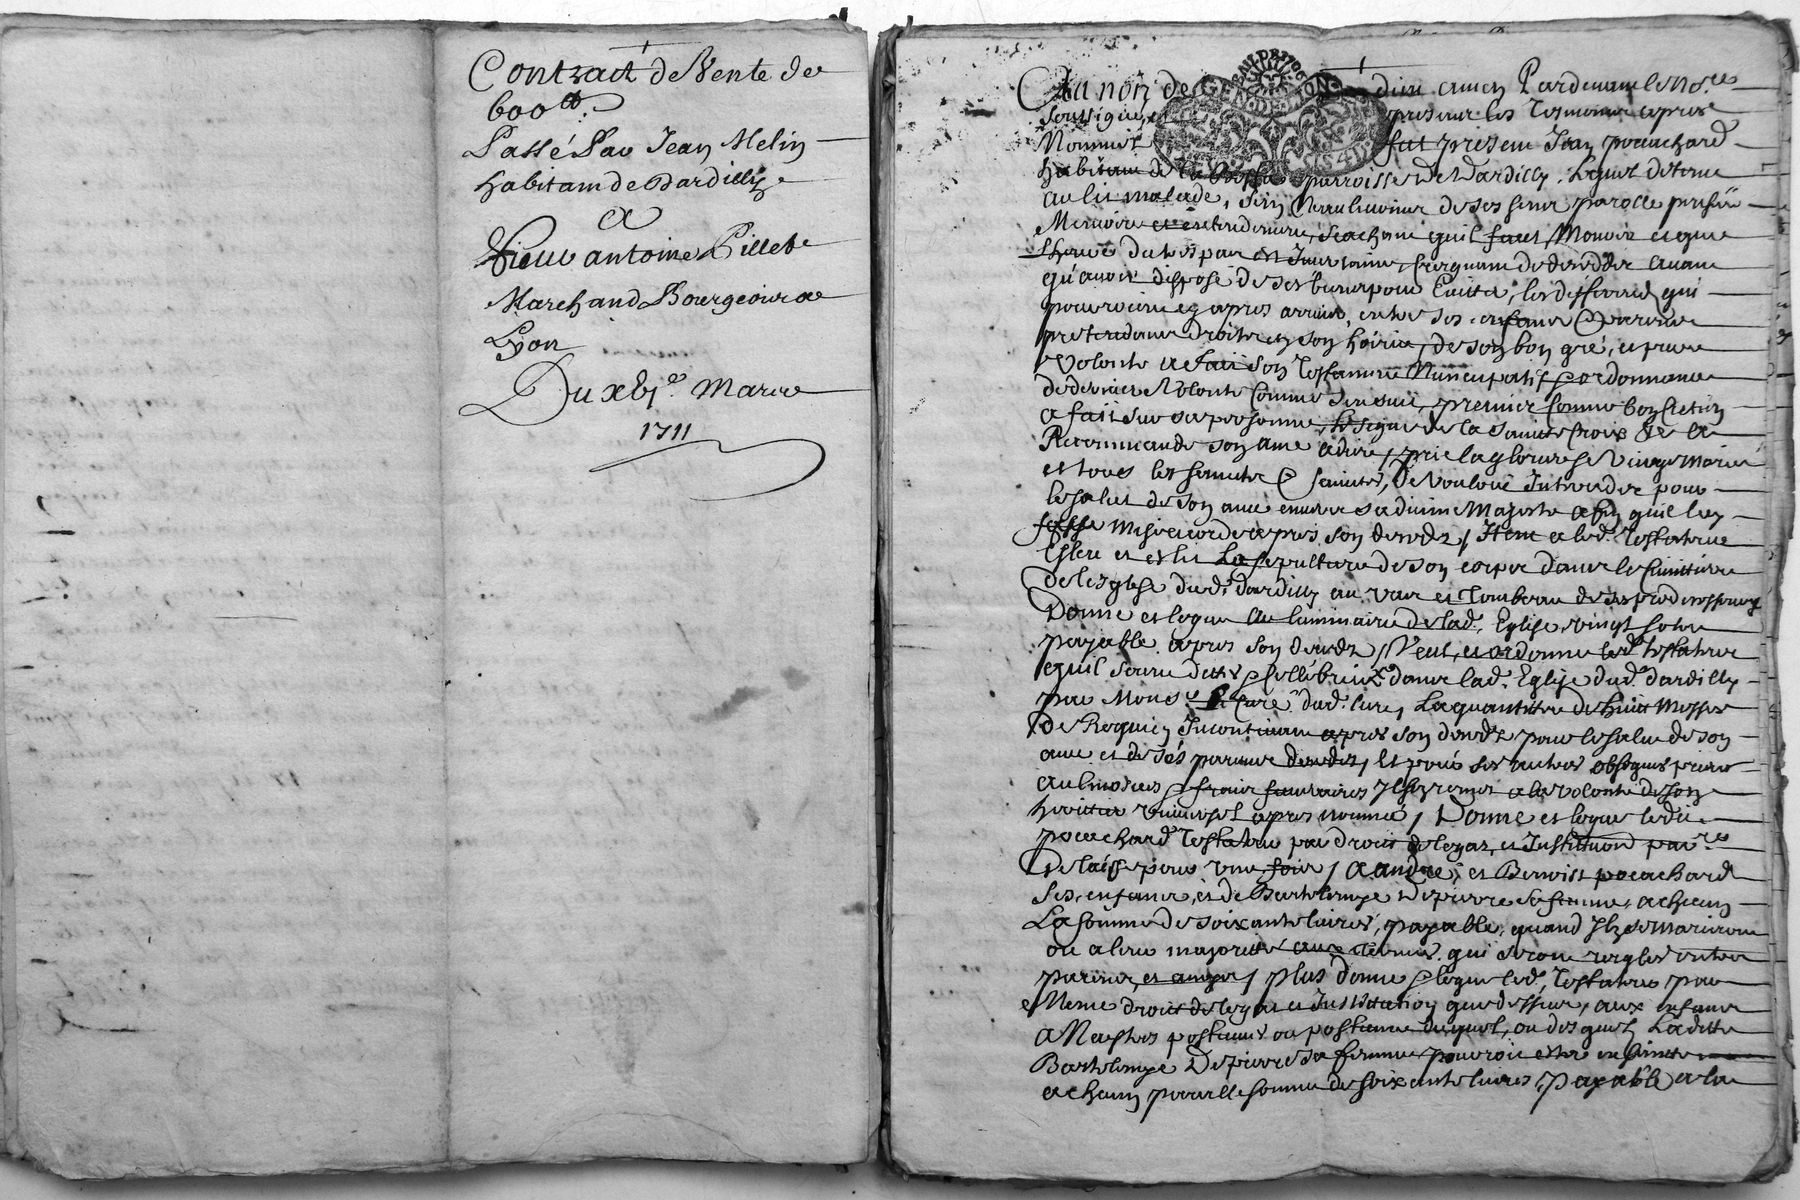 Contract de Vente de
600 lt.
Passé Par Jean Melin
habitant de Dardilly
A
Sieur antoine Pillet
Marchand Bourgeois a
Lyon
Du xbj.e Mars
1711
Au nom de dieu amen Pardevant le No.re
soussigné et presence les Tesmoins apres
Nommés fut present Jean pouchard
habitant de la paroisse de Dardilly, Lequel detenu
au lit malade, sain de ses sens parolle
Memoire et entendement, sachant quil faut Mourir et que
Lheure du trespas est Incertaine, Craignant de deceder avant
qu'avoir dispose de ses biens pour Eviter les differends qui
pourroient cy apres arriver entre ses enfans & autres
pretendants droits en son hoirie, de son bon gré, et pure
Volonté a fait son Testament Nuncupatif & ordonnance
de derniere Volonté Comme sensuit, premier Comme bon Cretien
a fait sur sa personne le signe de la sainte Croix &a
Recommandé son ame a dieu, prie la glorieuse Vierge Marie
et tous les saints & saintes, de vouloir Interceder pour
le salut de son ame envers sa divine Majesté afin quil luy
fasse misericorde apres son deceds / Item a led. Testateur
Esleu et eslit La sepulture de son corps dans le Cimitiere
de lesglise dud. dardilly au vas et Tombeau de ses predecesseurs
Donne et legue au luminaire de lad. Eglise vingt sols
payable apres son deceds / Veut et ordonne led. testateur
quil soient dittes & Cellebrées dans lad. Eglise dud. dardilly
par Mons.r le Curé dud. lieu, La quantitee de huit Messes
de Requiem Incontinant apres son deceds pour le salut de son
ame et de ses parents decedes, Et pour ses autres obseques prieres
aulmosnes & frais funeraires Il sen remet a la volonté de son
heritier universel apres nommé / Donne et legue ledit
pouchard Testateur par droit de legat, et Institution par.re
Delaisse pour une fois / a andré, et Benoist pouchard
ses enfans, et de Bartelemye Depierre sa femme, a chacun
La somme de soixante livres, payable, quand Ilz se marieront
ou a leur majorité aux termes qui seront reglés entre
parents, et amys / plus donne & legue led. Testateur par
Meme droit de legat et Institution que dessus, aux enfans
A Naystre postumes ou postume duquel, ou desquels Laditte
Bartelemye Depierre sa femme pourroit estre enceinte
a chacun pareille somme de soixante livres, payable a la